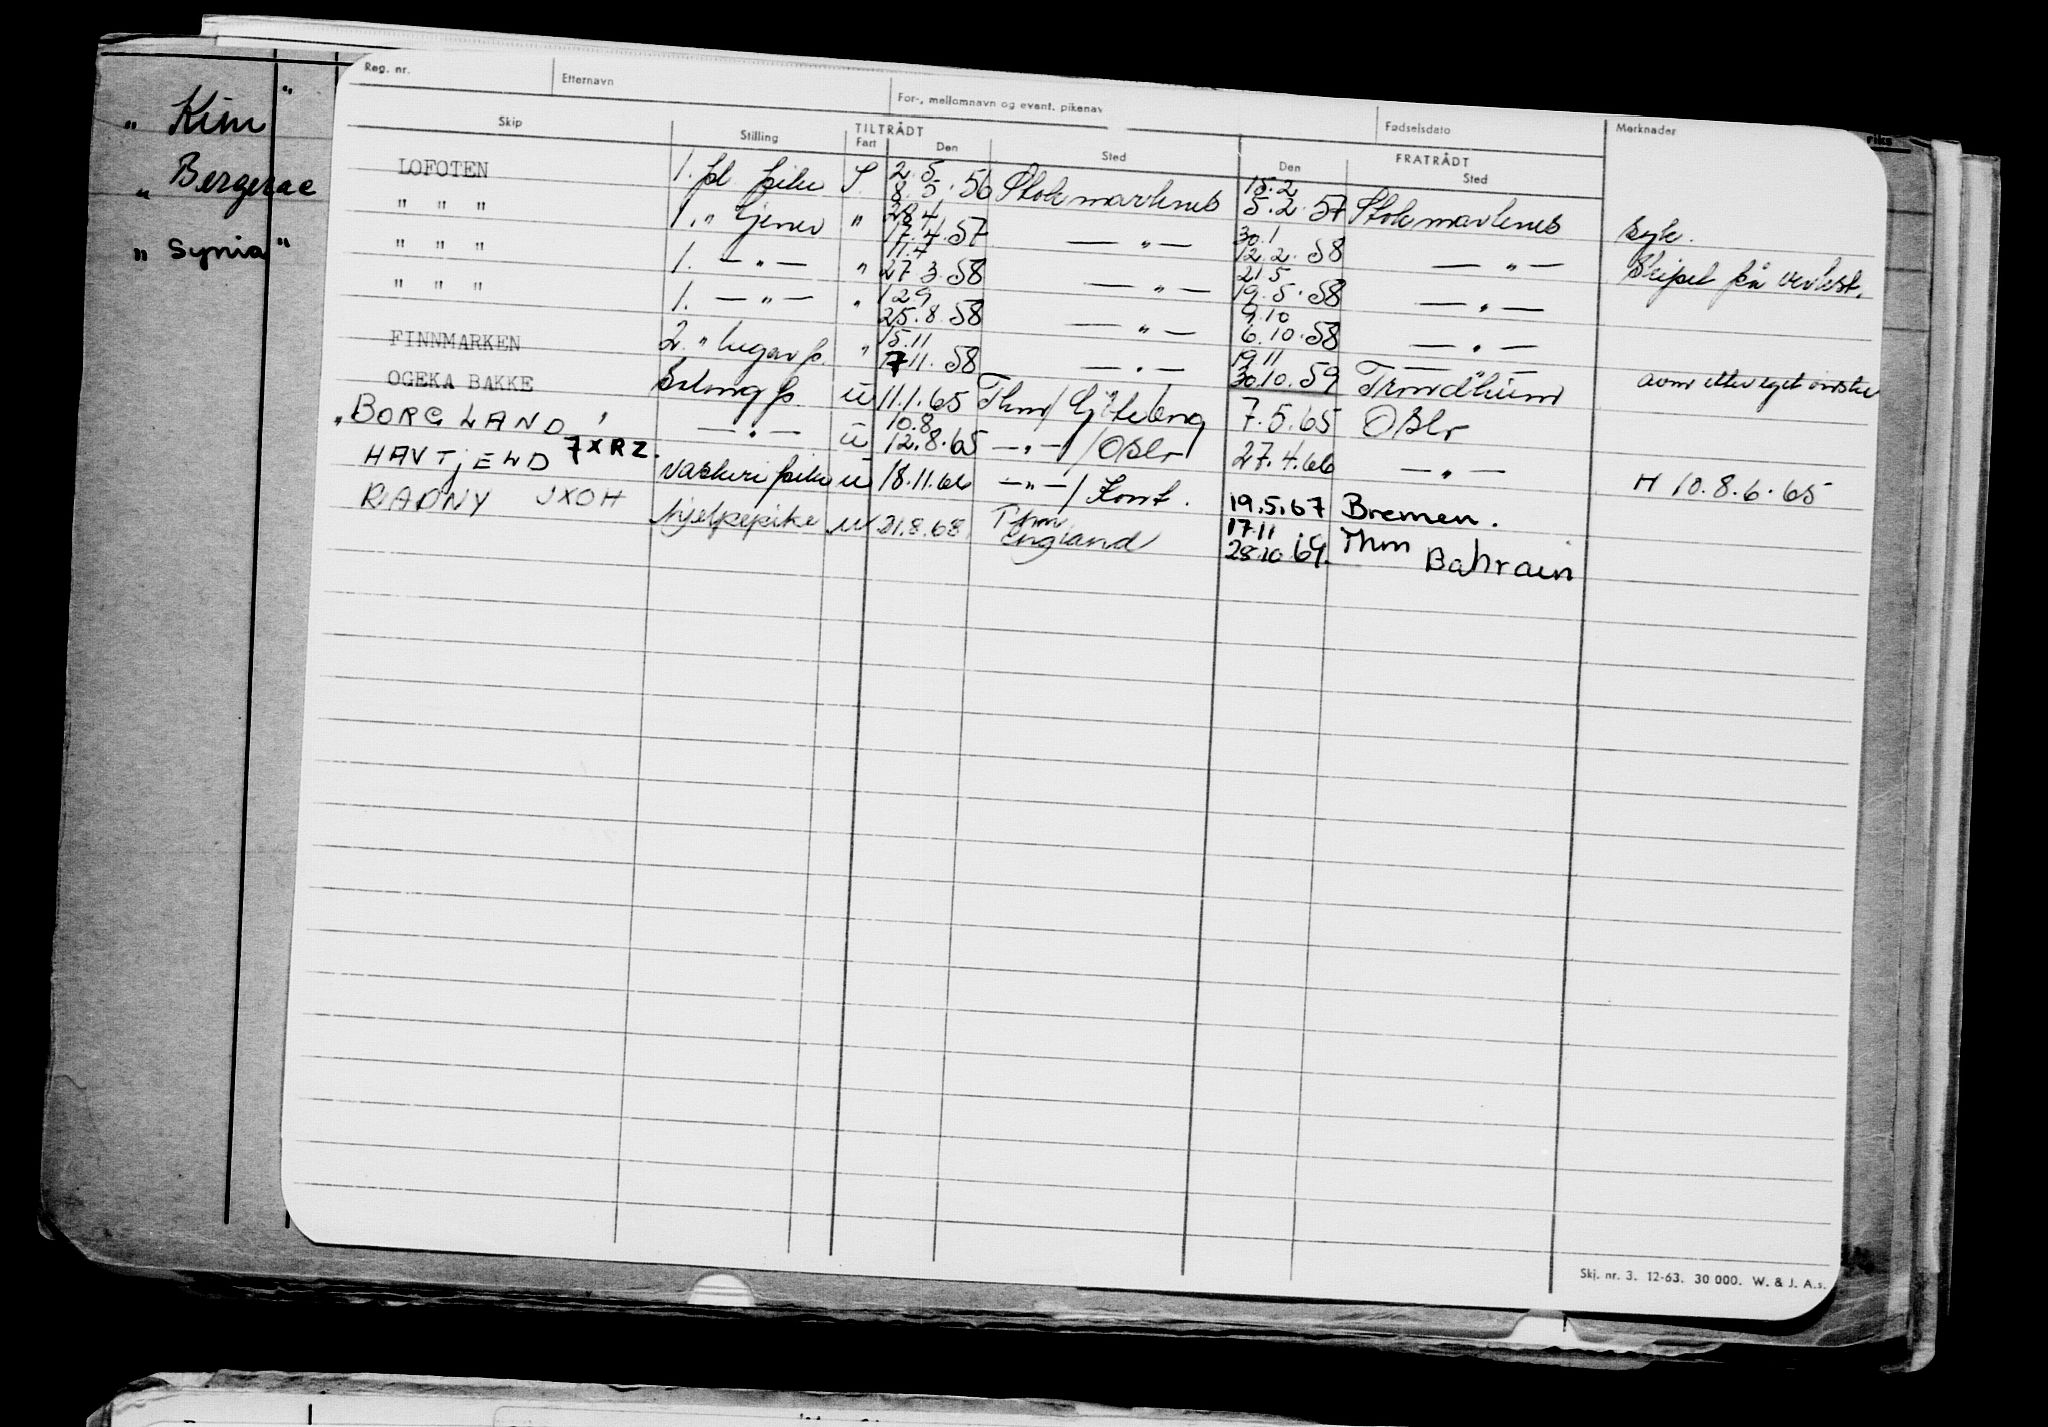 „ Kim "
„ Bergerac
„ Synia "
Reg. nr. Etternavn For-, mellomnavn og event. pikenav Fødselsdato Merknader
Skip Stilling TILTRÅDT FRATRÅDT
Fart Den Sted Den Sted
LOFOTEN 1. pl pike S. 2.5 8.5.56 Stokmarknes 15.2 5.2.57 Stokmarknes syk.
" " " 1. " tjener " 28.4 17.4.57 — " — 30.1 12.2.58 — " — Skipet på verkst.
" " " 1. — " — " 11.4 27.3.58 — " — 21.5 19.5.58 — " —
" " " 1. — " — " 12.9 25.8.58 — " — 9.10 6.10.58 — " —
FINNMARKEN 2. " lugar p. " 15.11 7.11.58 — " — 19.11 30.10.59 Trondheim avm etter eget ønske
OGEKA BAKKE p. u 11.1.65 Thm / Gøteborg 7.5.65 Oslo
„BORGLAND" — " — u 10.8 12.8.65 — " — / Oslo 27.4.66 — " — H 10.8.6.65
HAVTJELD 7XRZ. vaskeri pike u 18.11.66 — " — / Kont. 19.5.67 Bremen.
RADNY JXOH hjelpepike u 21.8.68 Thm England 17.11 28.10.69. Thm Bahrain
Skj. nr. 3. 12-63. 30 000. W. & J. A.s.